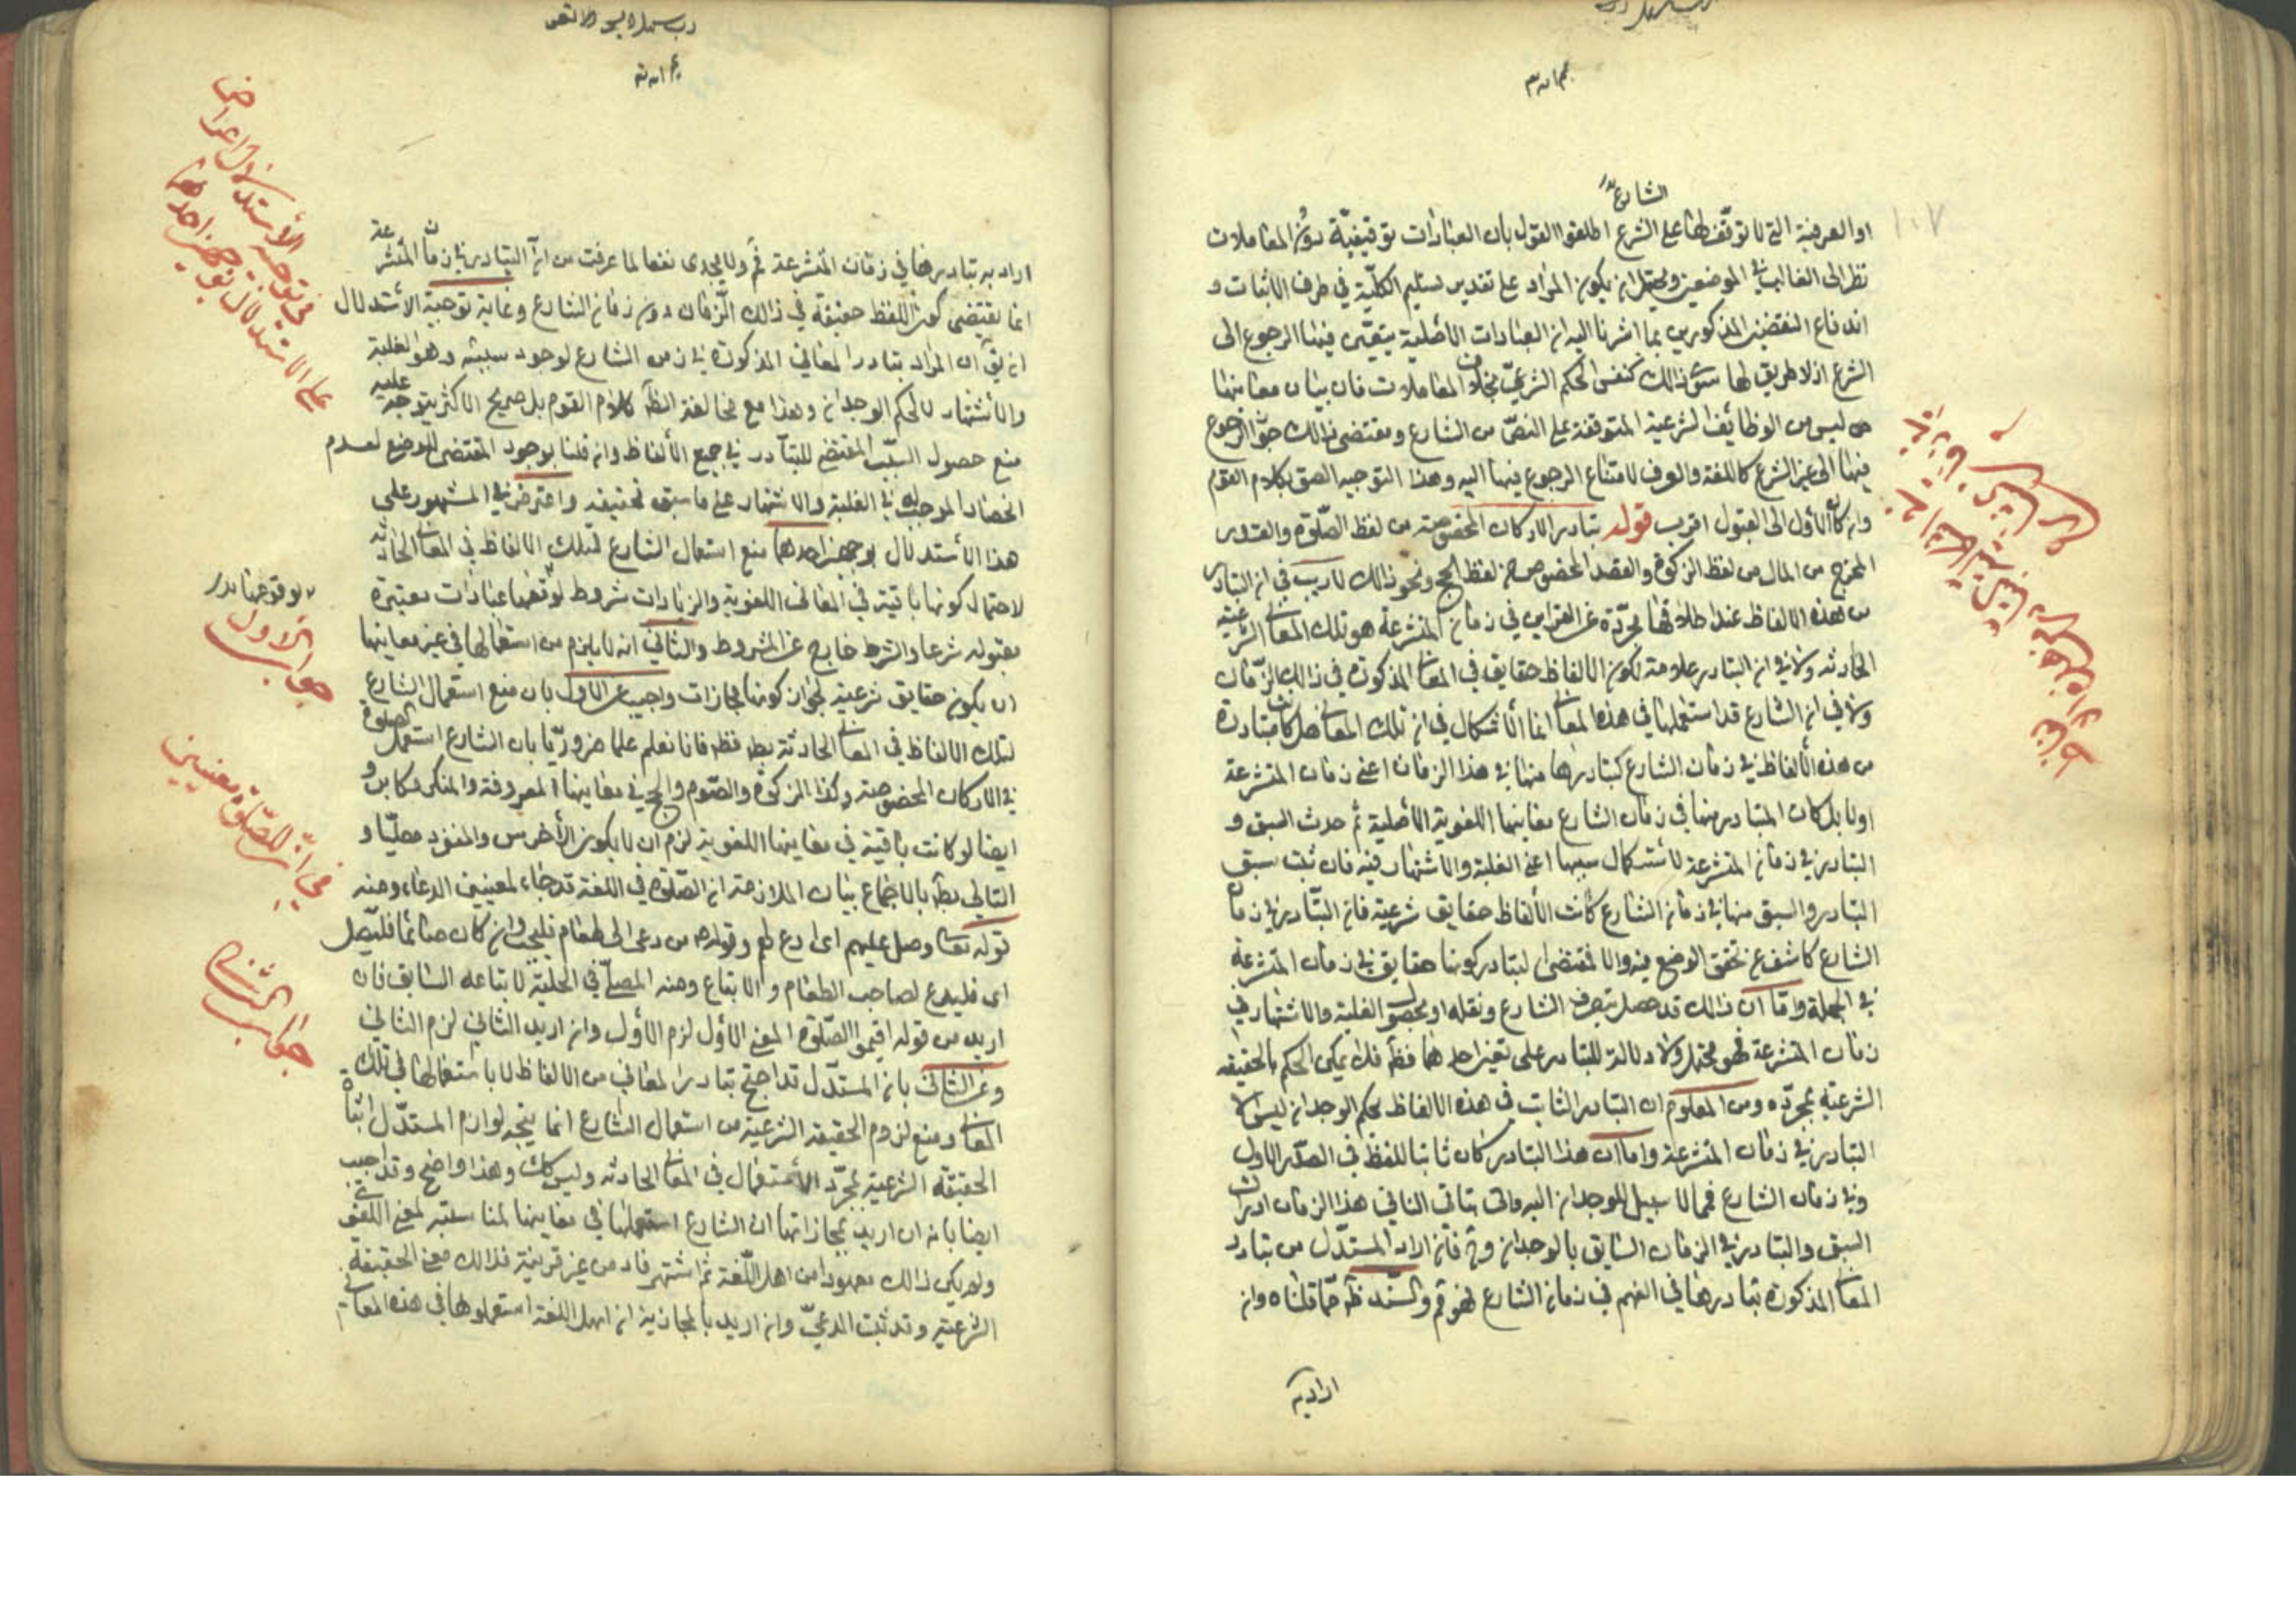 الشارع
او العرفية التى لا توقف لها على الشرع اطلقوا القول بان العبادات توقيفيّة دون المعاملات
نظرا الى الغالب فى الموضعين ويحتمل ان يكون المراد على تقدير تسليم الكلّية فى طرف الاثبات و
اندفاع النقضين المذكورين بما اشرنا اليه ان العبادات الأصلية يتعيّن فيها الرجوع الى
الشرع اذ لا طريق لها سوى ذالك كنفس الحكم الشرعىّ بخلاف المعاملات فان بيان معانيها
ليس من الوظائف الشرعية المتوقفة على النصّ من الشارع ومقتضى ذالك جواز الرجوع
فيها الى غير الشرع كاللغة والعرف لا امتناع الرجوع فيها اليه وهذا التوجيه الصق بكلام القوم
وان كان الأول الى القبول اقرب قوله تبادر الاركان المخصوصة من لفظ الصّلوة والقدر
المخرج من المال من لفظ الزكوة والقصد المخصوص من لفظ الحج ونحو ذالك لا ريب فى ان التبادر
من هذه الالفاظ عند اطلاقها مجرّدة عن القراين فى زمان المتشرعة هو تلك المعانى الشرعية
الحادثه ولا فى ان التبادر علامة لكون الالفاظ حقايق فى المعانى المذكورة فى ذالك الزّمان
ولا فى ان الشارع قد استعملها فى هذه المعانى انما الأشكال فى ان تلك المعانى هل كانت متبادرة
من هذه الألفاظ فى زمان الشارع كتبادرها منها فى هذا الزمان اعنى زمان المتشرعة
او لا بل كان المتبادر منها فى زمان الشارع معانيها اللغوية الأصلية ثم حدث السبق و
التبادر فى زمان المتشرعة لأستكمال سببها اعنى الغلبة والاشتهار فيه فان ثبت سبق
التبادر والسبق منها فى زمان الشارع كانت الألفاظ حقايق شرعية فان التبّادر فى زمان
الشارع كاشف عن تحقق الوضع فيه والا لمقتضى التبادر كونها حقايق فى زمان المتشرعة
فى الجملة وامّا ان ذالك قد حصل بتصرف الشارع ونقله او بحصول الغلبة والاشتهار فى
زمان المتشرعة فهو محتمل ولا دلالة للتبادر على تعيين احدهما فظهر فلا يمكن الحكم بالحقيقه
الشرعيّة بمجرّده ومن المعلوم ان التبادر الثابت فى هذه الالفاظ بحكم الوجدان ليس الا
التبادر فى زمان المتشرعة واما ان هذا التبادر كان ثابتا للفظ فى الصّدر الاول
وفى زمان الشارع فمما لا سبيل للوجدان اليه وانى يتاتى لنا فى هذا الزمان ادراك
السبق والتبادر فى الزمان السابق بالوجدان وح فان اراد المستدّل من تبادر
المعانى المذكورة تبادرها فى الفهم فى زمان الشارع فهو ثم والسّند ظ ممّا قلناه وان
اراد به
اراد به تبادرها فى زمان المتشرعة ثم ولا يجدى نفعا لما عرفت من ان التبادر فى زمان المتشرعة
انما يقتضى كون اللفظ حقيقة فى ذالك الّزمان دون زمان الشارع وغاية توجيه الاستدلال
ان يق ان المراد بتادر المعانى المذكورة فى زمن الشارع لوجود سببه وهو الغلبة
والأشتهار لا لحكم الوجدان وهذا مع مخالفته لظ كلام القوم بل صريح الاكثر يتوجه عليه
منع حصول السبّب المقتضى للتبادر فى جميع الألفاظ وان قلنا بوجود المقتضى للوضع لعدم
انحصار الموجب له فى الغلبة والاشتهار على ما سبق تحقيقه واعترض فى المشهور على
هذا الأستدلال بوجهين احدهما منع استعمال الشارع لتلك الالفاظ فى المعانى الحادثه
لاحتمال كونها باقية فى المعانى اللغوية والزيادات شروط لوقوعها عبادات معتبرة
مقبولة شرعا والشرط خارج عن المشروط والثانى انه لا يلزم من استعمالها فى غير معانيها
ان يكون حقايق شرعية لجواز كونها مجازات واجيب عن الأول بان منع استعمال الشارع
لتلك الالفاظ فى المعانى الحادثة بط قطعا فانا نعلم علما ضروريّا بان الشارع استعمل الصلوة
فى الاركان المخصوصة وكذا الزكوة والصّوم والحج فى معانيها المعروفة والمنكر مكابر و
ايضا لو كانت باقية فى معانيها اللغوية لزم ان لا يكون الأخرس والمنفرد مصليّا و
التالى بط بالاجماع بيان الملازمة ان الصّلوة فى اللغة قد جاء لمعنيين الدعاء ومنه
قوله تعالى وصل عليهم اى ادع لهم وقوله من دعى الى طعام فليجب وان كان صائما فليّصل
اى فليدع لصاحب الطعام والاتباع ومنه المصلّى فى الحلبة لاتباعه السابق فان
اريد من قوله اقيموا الصّلوة المعنى الأول لزم الأول وان اريد الثانى لزم الثانى
وعن الثانى بان المستدّل قد احتج بتبادر المعانى من الالفاظ لا باستعمالها فى تلك
المعانى ومنع لزوم الحقيقه الشرعية من استعمال الشارع انما يتجه لو ارام المستدّل اثبات
الحقيقة الشرعية بمجرّد الأستعمال فى المعانى الحادثه وليس كك وهذا واضح وقد اجيب
ايضا بانه ان اريد بمجازاتها ان الشارع استعملها فى معانيها لمناسبته لمعنى اللغوى
ولم يكن ذالك معهودا من اهل اللّغة ثم اشتهر فاد من غير قرينة فذالك معنى الحقيقة
الشرعية وقد ثبت المدعىّ وان اريد بالمجازية ان اهل اللغة استعملوها فى هذه المعانى
فى توجيه الأستدلال واعتراض
على الاستدلال بوجهين احدهما
لوقوعها
جواب الاول
فى انّ للصّلوة معنيين
جواب الثانى